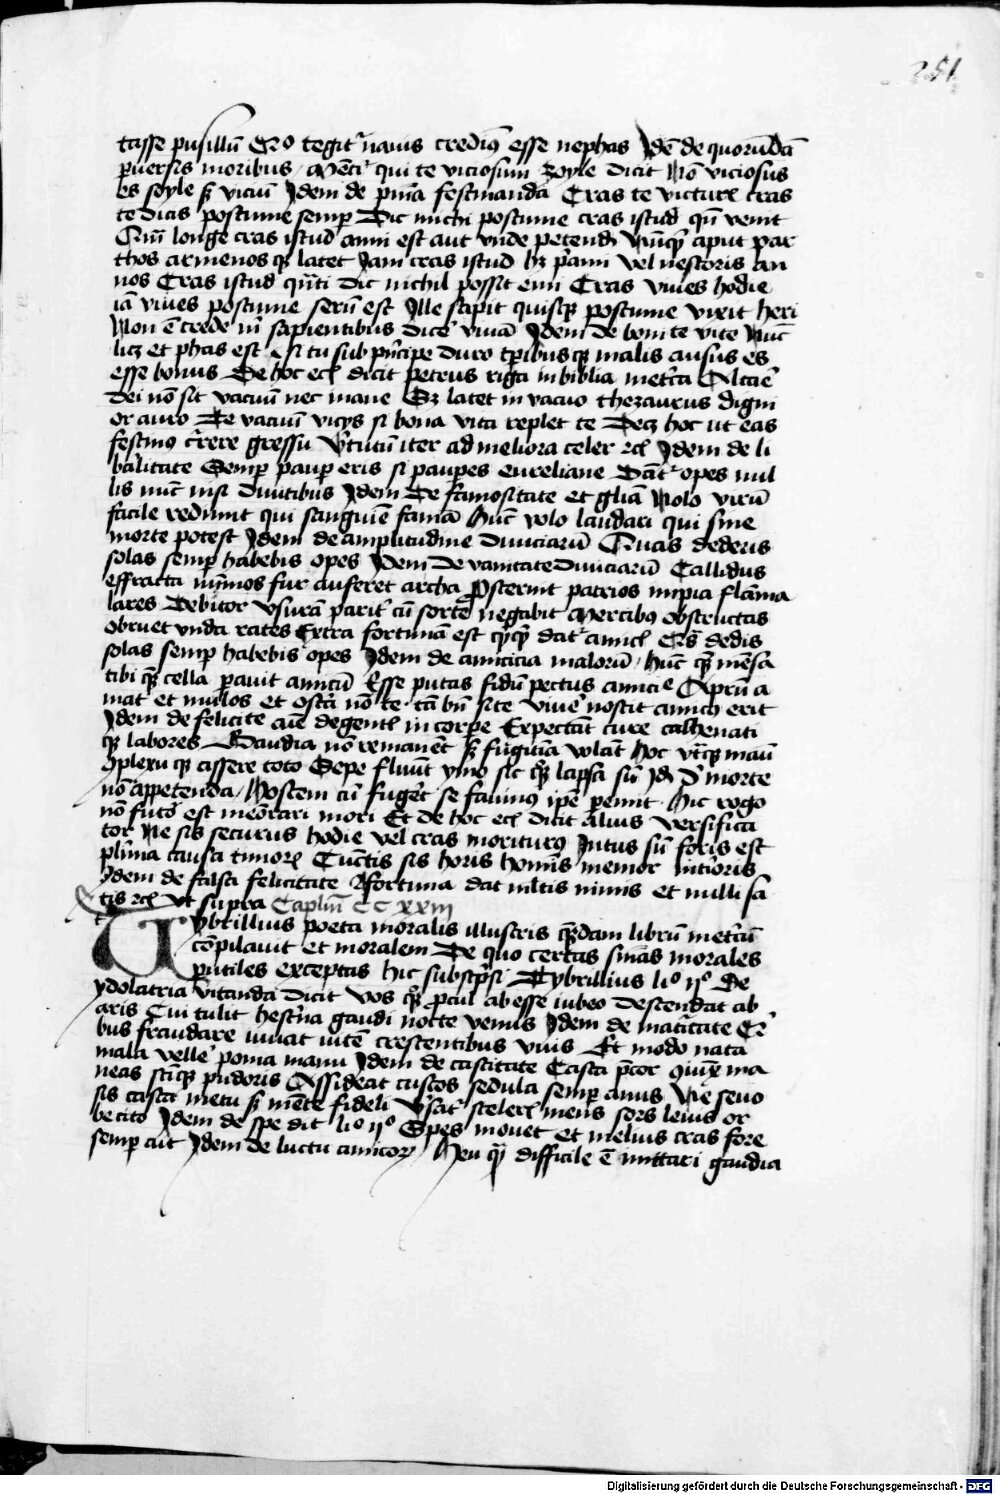 251
tasse pusillū Cro tegitʳ nauis crediꝰ esse nephas Idē de quorūdā
puersis moribus Mētiʳ qui te viciosum zoyle dicit Nō viciosus
es soyle sʒ viciū Idem de pīa festinanda Cras te victurū cras
te dicis postume semꝑ Dic michi postume cras istud qñ venit
Qm̄ longe cras istud anni est aut vnde petendū Nūqͥ aput par
thos armenos qʒ latet Iam cras istud hʒ pͥami vel nestoris an
nos Cras istud qͣti dic michil possit emi Cras viues hodie
iā viues postume serū est Ille sapit quisqͥs postume vixit heri
Non ē crede m̄ sapientibus dicēʳ viuā Idem de bonitate vite Nūc
licʒ et phas est si tu sub pͥncipe duro tꝑibusqʒ malis ausus es
esse bonus De hoc ecͥ dicit petrus riga in biblia metͥca Altāē
dei nō sit vacuū nec mane Sʒ latet in vacuo thezaurus digni
or auro Te vacuū vicijs si bona vita replet te Decʒ hoc ut eas
festinꝰ cʳrere gressu Vʳtutū iter ad meliora celer ⁊cͥ Idem de li
bālitate Semꝑ pauꝑ eris si pauꝑes emeliane Dāt̄ʳ opes nul
lis nūc nisi diuitibus Idem De famositate et gliā Nolo virū
facile redimit qui sanguiē famā Hūc volo laudari qui sine
morte potest Idem de amplitudine diuiciarū Quas dederis
solas semꝑ habebis opes Idem De vanitate Diuiciarū Callidus
effracta nūmos fur auferet archa Prosternit patrios impia flāma
lares Debitor vsurā pariʳ cū sorte negabit Mercibꝰ obstructas
obruet vnda rates Extra fortunā est qͥcqͥd datʳ amicͥ Qͣs dedis
solas semꝑ habebis opes Idem de amicicia malorū Hūc qʒ mēsa
tibi qʒ cella pauit amicū Esse putas fidū pectus amiciͤ Aprū a
mat et mulos et ostͣa nō te tā bn̄ si te viueʳ noscit amicꝰ erit
Idem de felicite aīe degentͥ in corꝑe Expectāt cure cathenati
qʒ labores Gaudia nō remanēt sʒ fugitiua volāt Hoc vtͣqʒ manū
ꝯplexu qʒ assere toto Sepe fluūt ymo sic qʒ lapsa sūt Idē Dʳ morte
nō appetenda Hostem cū fugeʳt se fanniꝰ ipē pemit Hic rogo
nō furoʳ est ne moriare mori Et de hoc ecͥ dicit Alius versifica
tor Ne sis securus hodie vel cras moriturꝰ Intus sū foris est
plʳima causa timorͥ Cūctis sis horis homīs memor intͥoris
Idem de falsa felicitate Fortuna dat mltis nimis et nulli sa
tis ⁊cͥ vt supra Caplm̄ CC xxiij
Tybrillius poeta moralis illustris qʒdam librū metͥcū
cōpilauit et moralem De quo certas snīas morales
ꝑutiles exceptas hic subscͥpsi Tybrillius liᵒ ijᵒ De
ydolatria vitanda dicit Vos qʒ ꝓcul abesse iubeo Descendat ab
aris Cui tulit hestʳna gaudi nocte venus Idem de matͥitate Qͥd
bus fraudare iuuat vitē crescentibus vuis Et modo nata
mala velleʳ poma manu Idem de castitate Casta pͥcor qͥuix ma
neas scīqʒ pudoris Assideat custos sedula semꝑ anus Nec seuo
sis casta metu sʒ mēte fideli Vʳsatʳ scelerͥ mens sors leuis or
be cito Idem de spe dit liᵒ ijᵒ Spes mouet et melius cras fore
semꝑ ait Idem de luctu amicorꝝ Heu qͣ difficile ē imitari gaudia
Digitalisierung gefördert durch die Deutsche Forschungsgemeinschaft - DFG